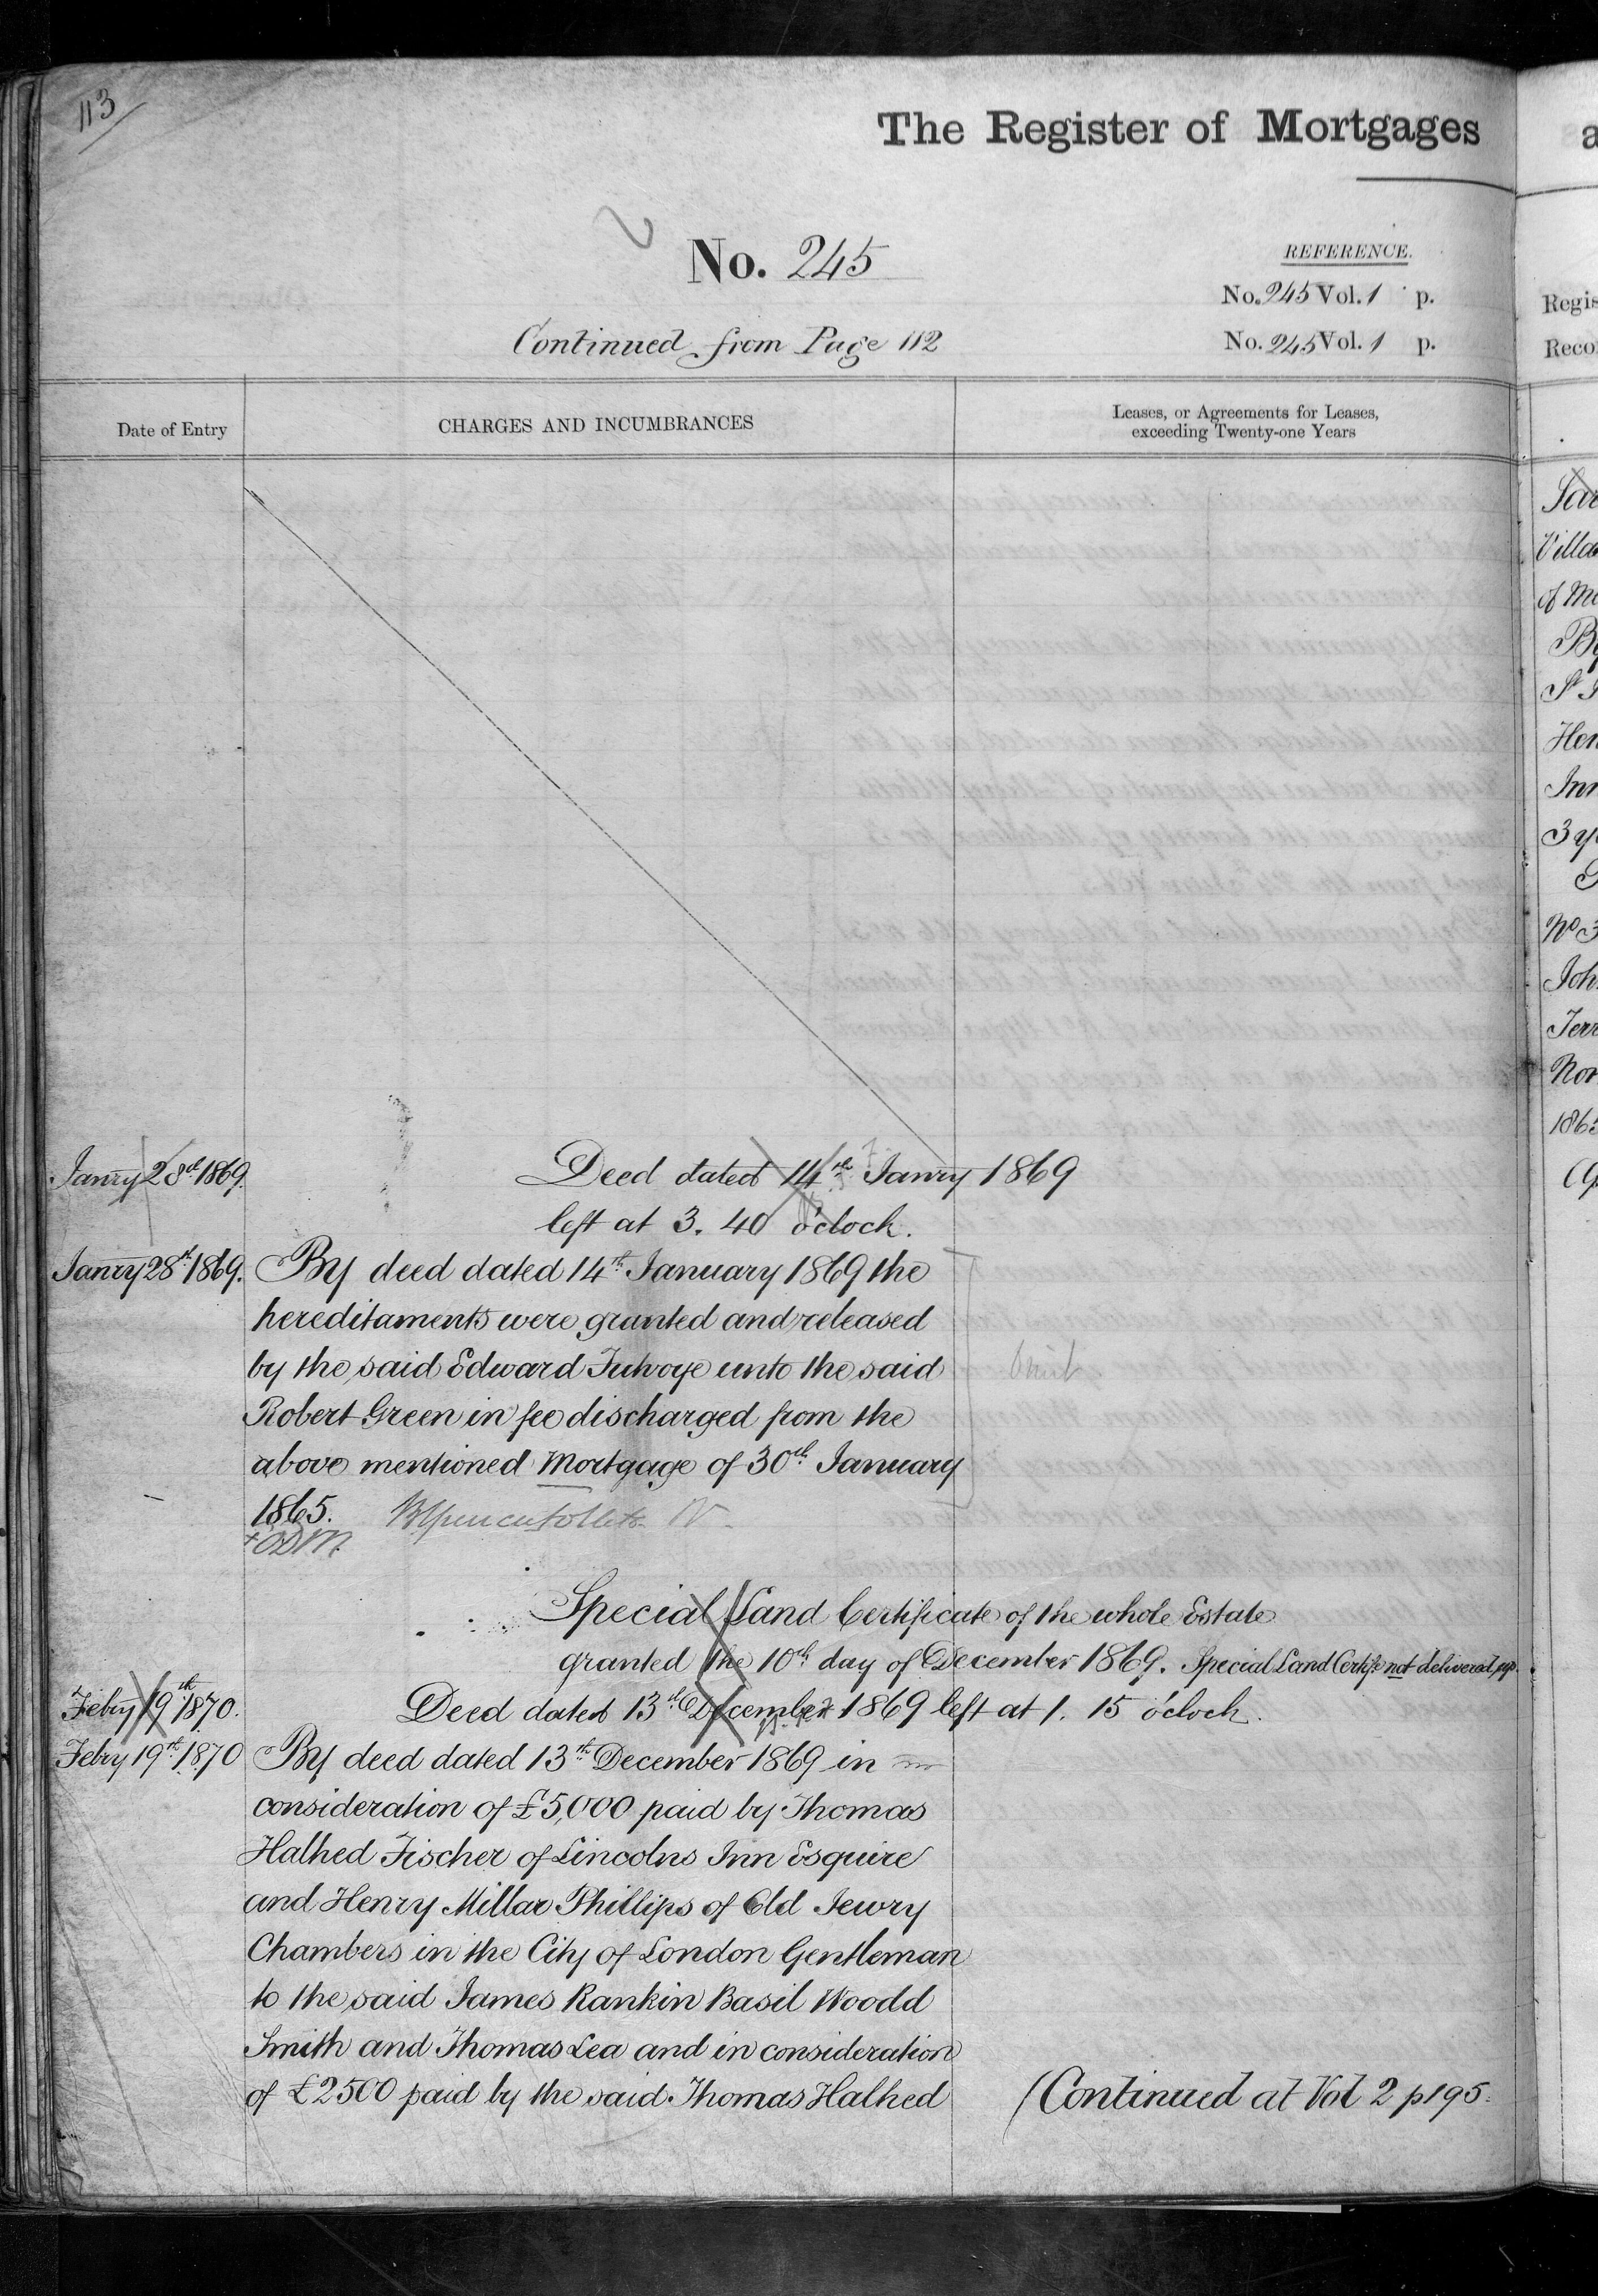 113
The Register of Mortgages
No. 245
REFERENCE.
No. 245 Vol. 1 p.
Continued from Page 112
No. 245 Vol. 1 p.
Date of Entry
CHARGES AND INCUMBRANCES
Leases, or Agreements for Leases,
exceeding Twenty-one Years
Janry 28th 1869. Deed dated 14th Janry 1869
left at 3. 40 o'clock.
Janry 28th 1869. By deed dated 14th January 1869 the
hereditaments were granted and released
by the said Edward Futvoye unto the said
Omit
Robert Green in fee discharged from the
above mentioned Mortgage of 30th January
1865.
Special Land Certificate of the whole Estate
granted the 10th day of December 1869. Special Land Certife not delivered up.
Febry 19th 1870. Deed dated 13th December 1869 left at 1. 15 o'clock.
Febry 19th 1870 By deed dated 13th December 1869 in
consideration of £5,000 paid by Thomas
Halhed Fischer of Lincolns Inn Esquire
and Henry Millar Phillips of Old Jewry
Chambers in the City of London Gentleman
to the said James Rankin Basil Woodd
Smith and Thomas Lea and in consideration
of £2500 paid by the said Thomas Halhed
(Continued at Vol 2 p195.
Regis
Reco
Villa
of Mo
By
St J
Hen
Inn
3 y
No 3
Joh
Terr
Nor
186